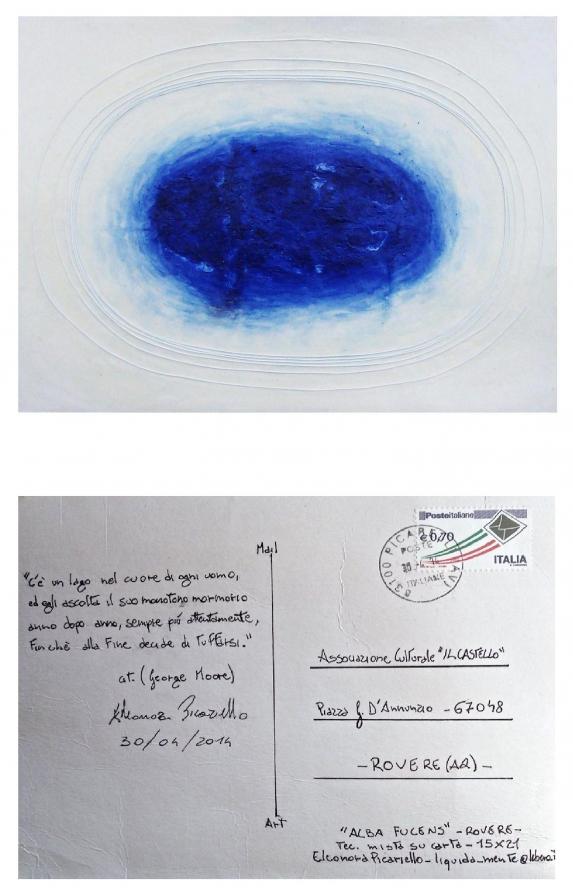 Mail
"C'è un lago nel cuore di ogni uomo,
ed egli ascolta il suo monotono mormorio
anno dopo anno, sempre più attentamente,
finché alla fine decide di tuffarsi."
cit. (George Moore)
Eleonora Picariello
30/04/2014
Art
Posteitaliane
€0,70
ITALIA
83100 PICARELLI AV
POSTE
ITALIANE
Associazione Culturale "IL CASTELLO"
Piazza G. D'Annunzio - 67048
- ROVERE (AQ) -
"ALBA FUCENS" - ROVERE -
Tec. mista su carta - 15x21
Eleonora Picariello - liquida_mente@libero.it